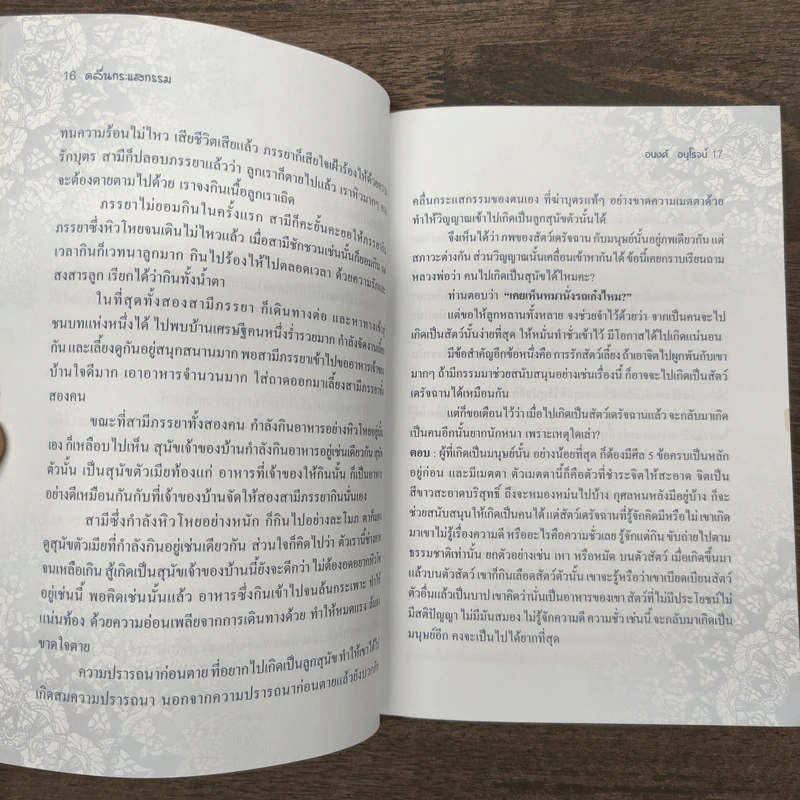 16 คลื่นกระแสกรรม
ทนความร้อนไม่ไหว เสียชีวิตเสียแล้ว ภรรยาก็เสียใจเฝ้าร้องไห้ด้วยความ
รักบุตร สามีก็ปลอบภรรยาแล้วว่า ลูกเราก็ตายไปแล้ว เราหิวมากๆ
จะต้องตายตามไปด้วย เราจงกินเนื้อลูกเราเถิด
ภรรยาไม่ยอมกินในครั้งแรก สามีก็คะยั้นคะยอให้ภรรยากิน
ภรรยาซึ่งหิวโหยจนเดินไม่ไหวแล้ว เมื่อสามีชักชวนเช่นนั้นก็ยอมกิน
เวลากินก็เวทนาลูกมาก กินไปร้องไห้ไปตลอดเวลา ด้วยความรักและ
สงสารลูก เรียกได้ว่ากินทั้งน้ำตา
ในที่สุดทั้งสองสามีภรรยา ก็เดินทางต่อ และหาทางเข้าสู่
ชนบทแห่งหนึ่งได้ ไปพบบ้านเศรษฐีคนหนึ่งร่ำรวยมาก กำลังจัดงานเลี้ยง
กัน และเลี้ยงดูกันอยู่สนุกสนานมาก พอสามีภรรยาเข้าไปขออาหารเจ้าของ
บ้านใจดีมาก เอาอาหารจำนวนมาก ใส่ถาดออกมาเลี้ยงสามีภรรยาทั้ง
สองคน
ขณะที่สามีภรรยาทั้งสองคน กำลังกินอาหารอย่างหิวโหยอยู่นั้น
เอง ก็เหลือบไปเห็น สุนัขเจ้าของบ้านกำลังกินอาหารอยู่เช่นเดียวกัน สุนัข
ตัวนั้น เป็นสุนัขตัวเมียท้องแก่ อาหารที่เจ้าของให้กินนั้น ก็เป็นอาหาร
อย่างดีเหมือนกันกับที่เจ้าของบ้านจัดให้สองสามีภรรยากินนั่นเอง
สามีซึ่งกำลังหิวโหยอย่างหนัก ก็กินไปอย่างละโมภ ตาก็มอง
ดูสุนัขตัวเมียที่กำลังกินอยู่เช่นเดียวกัน ส่วนใจก็คิดไปว่า ตัวเรานี้ช่าง
จนเหลือเกิน สู้เกิดเป็นสุนัขเจ้าของบ้านนี้ยังจะดีกว่า ไม่ต้องอดอยากหิวโหย
อยู่เช่นนี้ พอคิดเช่นนั้นแล้ว อาหารซึ่งกินเข้าไปจนล้นกระเพาะ ทำให้
แน่นท้อง ด้วยความอ่อนเพลียจากการเดินทางด้วย ทำให้หมดแรง
ขาดใจตาย
ความปรารถนาก่อนตาย ที่อยากไปเกิดเป็นลูกสุนัข ทำให้เขาได้ไป
เกิดสมความปรารถนา นอกจากความปรารถนาก่อนตายแล้วยังบวกกับ
อนงค์ อนุโรจน์ 17
คลื่นกระแสกรรมของตนเอง ที่ฆ่าบุตรแท้ๆ อย่างขาดความเมตตาด้วย
ทำให้วิญญาณเข้าไปเกิดเป็นลูกสุนัขตัวนั้นได้
จึงเห็นได้ว่า ภพของสัตว์เดรัจฉาน กับมนุษย์นั้นอยู่ภพเดียวกัน แต่
สภาวะต่างกัน ส่วนวิญญาณนั้นเคลื่อนเข้าหากันได้ ข้อนี้เคยกราบเรียนถาม
หลวงพ่อว่า คนไปเกิดเป็นสุนัขได้ไหมคะ?
ท่านตอบว่า “เคยเห็นหมานั่งรถเก๋งไหม?”
แต่ขอให้ลูกหลานทั้งหลาย จงช่วยจำไว้ด้วยว่า จากเป็นคนจะไป
เกิดเป็นสัตว์นั้นง่ายที่สุด ให้หมั่นทำชั่วเข้าไว้ มีโอกาสได้ไปเกิดแน่นอน
มีข้อสำคัญอีกข้อหนึ่งคือ การรักสัตว์เลี้ยง ถ้าเอาจิตไปผูกพันกับเขา
มากๆ ถ้ามีกรรมมาช่วยสนับสนุนอย่างเช่นเรื่องนี้ ก็อาจจะไปเกิดเป็นสัตว์
เดรัจฉานได้เหมือนกัน
แต่ก็ขอเตือนไว้ว่า เมื่อไปเกิดเป็นสัตว์เดรัจฉานแล้ว จะกลับมาเกิด
เป็นคนอีกนั้นยากนักหนา เพราะเหตุใดเล่า?
ตอบ : ผู้ที่เกิดเป็นมนุษย์นั้น อย่างน้อยที่สุด ก็ต้องมีศีล 5 ข้อครบเป็นหลัก
อยู่ก่อน และมีเมตตา ตัวเมตตานี้ก็คือตัวที่ชำระจิตให้สะอาด จิตเป็น
สีขาวสะอาดบริสุทธิ์ ถึงจะหมองหม่นไปบ้าง กุศลหนหลังมีอยู่บ้าง ก็จะ
ช่วยสนับสนุนให้เกิดเป็นคนได้ แต่สัตว์เดรัจฉานที่รู้จักคิดมีหรือไม่ เขาเกิด
มาเขาไม่รู้เรื่องความดี หรืออะไรคือความชั่วเลย รู้จักแต่กิน ขับถ่ายไปตาม
ธรรมชาติเท่านั้น ยกตัวอย่างเช่น เหา หรือหมัด บนตัวสัตว์ เมื่อเกิดขึ้นมา
แล้วบนตัวสัตว์ เขาก็กินเลือดสัตว์ตัวนั้น เขาจะรู้หรือว่าเขาเบียดเบียนสัตว์
ตัวอื่นแล้วเป็นบาป เขาคิดว่านั่นเป็นอาหารของเขา สัตว์ที่ไม่มีประโยชน์ไม่
มีสติปัญญา ไม่มีมันสมอง ไม่รู้จักความดี ความชั่ว เช่นนี้ จะกลับมาเกิดเป็น
มนุษย์อีก คงจะเป็นไปได้ยากที่สุด